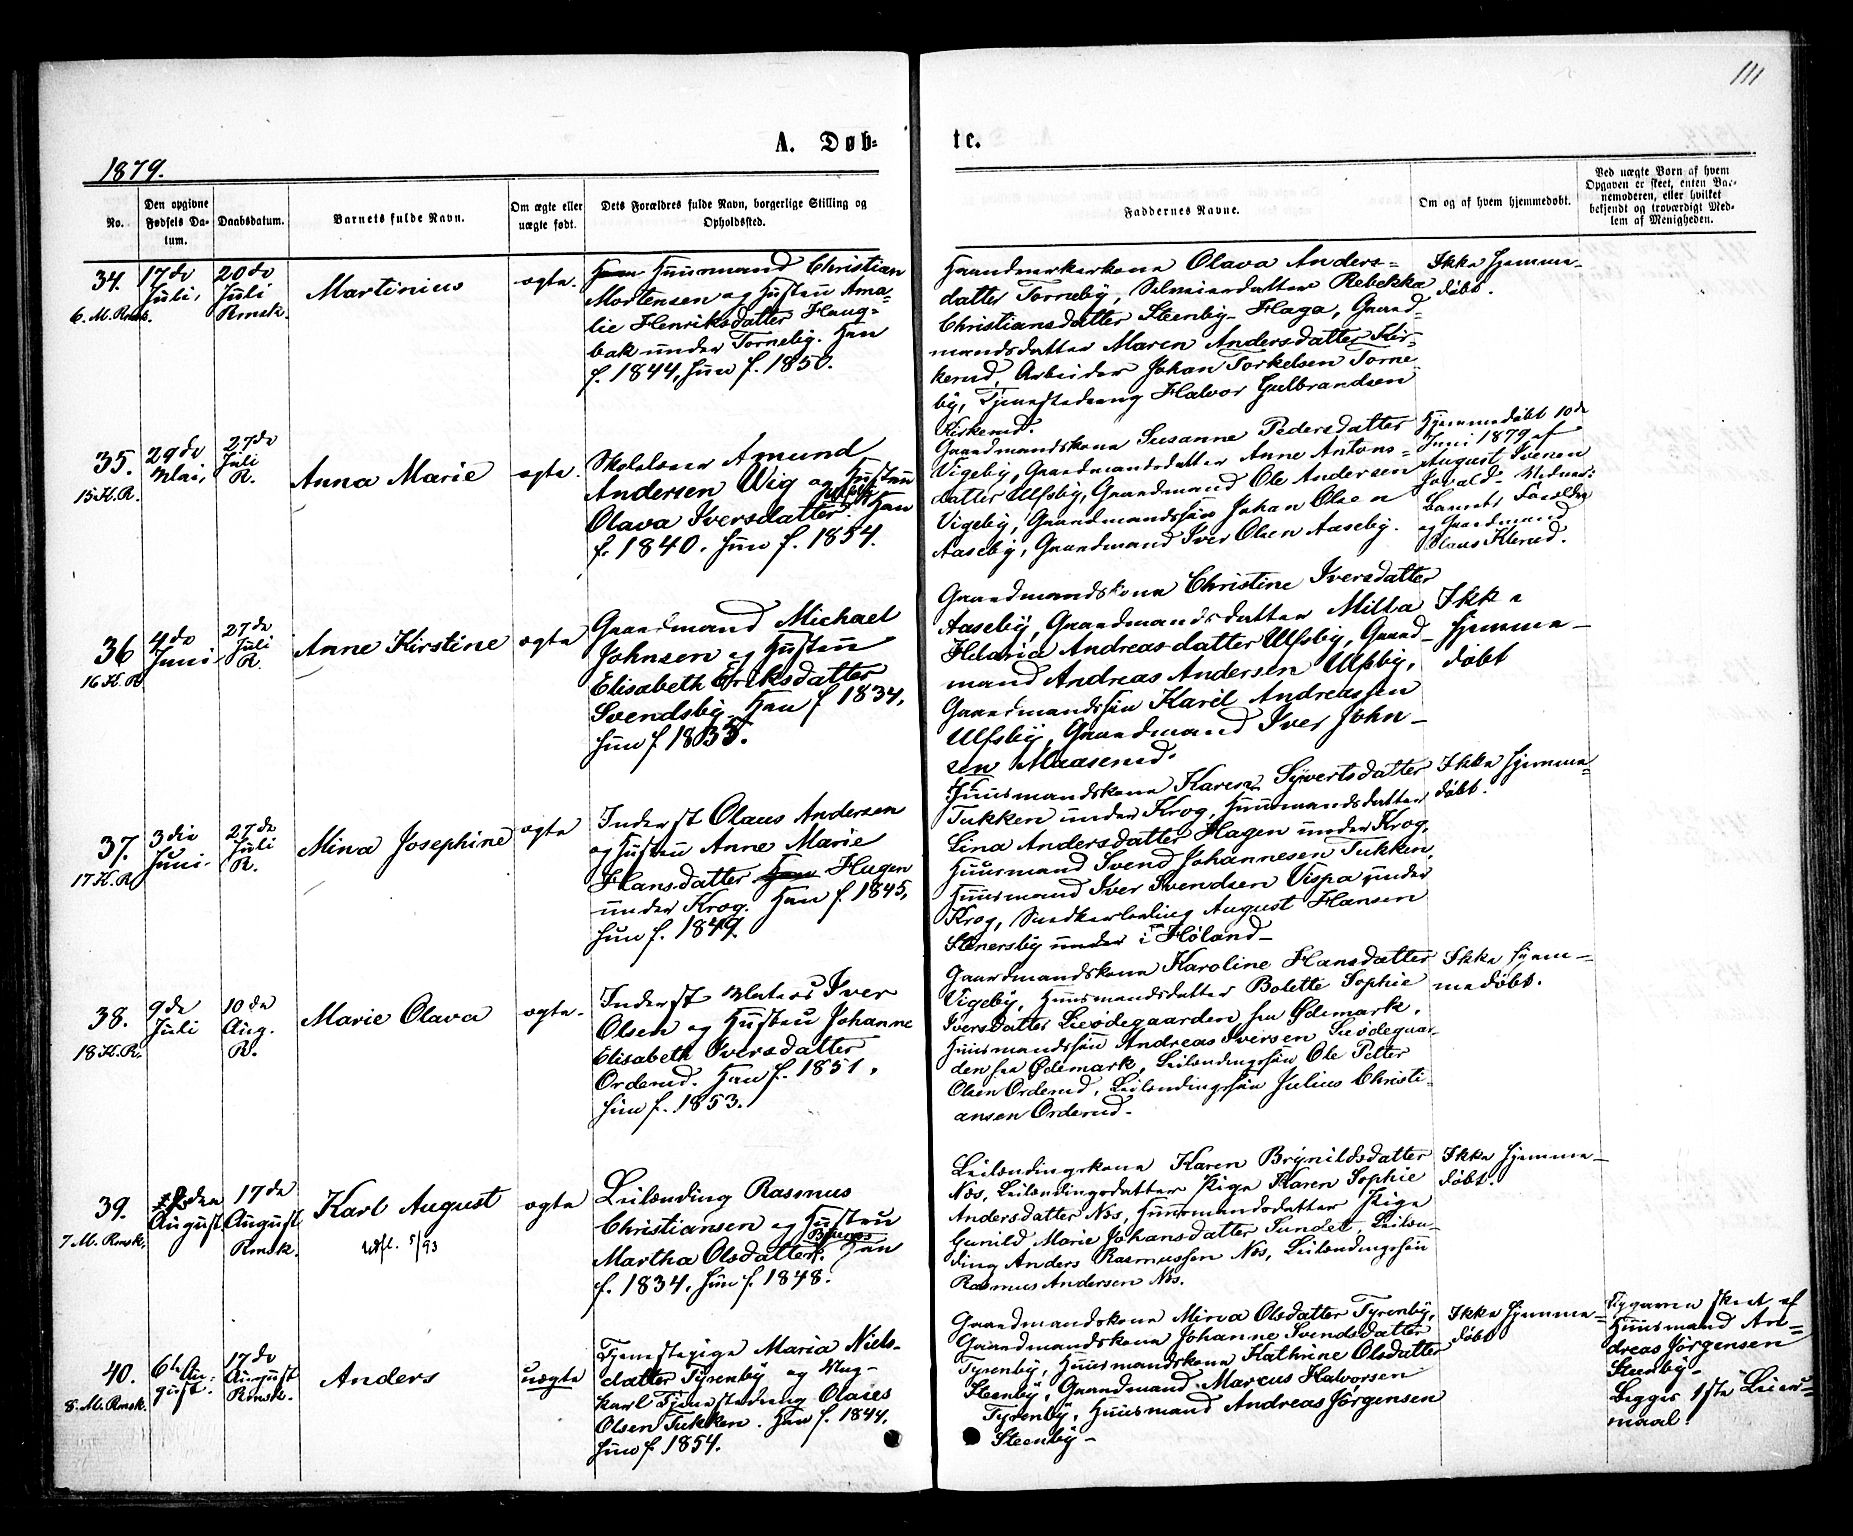 111
A. Døb-
te.
1879.
No.
Den opgivne
Fødsels Da-
tum.
Daabsdatum.
Barnets fulde Navn.
Om ægte eller
uægte født.
Dets Forældres fulde Navn, borgerlige Stilling og
Opholdssted.
Faddernes Navne.
Om og af hvem hjemmedøbt.
Ved uægte Børn af hvem
Opgaven er skeet, enten Bar-
nemoderen, eller hvilket
bekjendt og troværdigt Med-
lem af Menigheden.
34.
6. M. Rmsk.
17de
Juli,
20de
Juli
Rmsk.
Martinius
ægte.
Huusmand Christian
Mortensen og Hustru Ama-
lie Henriksdatter Haug-
bak under Torneby. Han
f. 1844, hun f. 1850.
Haandverkerkone Olava Anders-
datter Torneby, Selveierdatter Rebekka
Christiansdatter Steenby Haga, Gaard-
mandsdatter Maren Andersdatter Kir-
kerud, Arbeider Johan Torkelsen Torne
by, Tjenestedreng Halvor Gulbrandsen
Kirkerud.
Ikke hjemme-
døbt.
35.
15 K. R.
29de
Mai,
27de
Juli
R.
Anna Marie
ægte.
Skolelærer Amund
Andersen Wig og Hustru
Olava Iversdatter. Han
f. 1840. hun f. 1854.
Gaardmandskone Susanne Pedersdatter
Vigeby, Gaardmandsdatter Anne Antons-
datter Ulfsby, Gaardmand Ole Andersen
Vigeby, Gaardmandssøn Johan Olsen
Aaseby, Gaardmand Iver Olsen Aaseby.
Hjemmedøbt 10de
Juni 1879 af
August Svensen
Barnets Forældre
og Gaardmand
Olaus Klerud.
36
16 K. R
4de
Juni
27de
Juli
R.
Anne Kirstine
ægte
Gaardmand Michael
Johnsen og Hustru
Elisabeth Eriksdatter
Svendsby. Han f. 1834,
hun f. 1833.
Gaardmandskone Christine Iversdatter
Aaseby, Gaardmandsdatter Milla
Helaria Andreasdatter Ulfsby, Gaard-
mand Andreas Andersen Ulfsby,
Gaardmandssøn Karel Andreassen
Ulfsby, Gaardmand Iver John-
sen Maaserud.
Ikke
hjemme-
døbt
37.
17 K. R
3die
Juni.
27de
Juli
R.
Mina Josephine
ægte
Inderst Olaus Andersen
og Hustru Anne Marie
Hansdatter Hagen
under Krog. Han f. 1845,
hun f. 1849.
Huusmandskone Karen Syvertsdatter
Tukken under Krog, Huusmandsdatter
Lina Andersdatter Hagen under Krog,
Huusmand Svend Johannesen Tukken,
Huusmand Iver Svendsen Vispa under
Krog, Snedkerlærling August Hansen
Stenersby under i Høland
Ikke hjemme-
døbt.
38.
18 K. R.
9de
Juli
10de
Aug.
R.
Marie Olava
ægte.
Inderst Iver
Olsen og Hustru Johanne
Elisabeth Iversdatter
Orderud. Han f. 1851,
hun f. 1853.
Gaardmandskone Karoline Hansdatter
Vigeby, Huusmandsdatter Bolette Sophie
Iversdatter Lieødegaarden fra Ødemark,
Huusmandssøn Andreas Iversen Lieødegaar-
den fra Ødemark, Leilændingssøn Ole Petter
Olsen Orderud, Leilændingssøn Julius Christi-
ansen Orderud.
Ikke hjem-
medøbt.
39.
7 M. Rmsk.
den
August
17de
August
Rmsk.
Karl August
udfl. 5/93
ægte
Leilænding Rasmus
Christiansen og Hustru
Martha Olsdatter. Han
f. 1834, hun f. 1848.
Leilændingskone Karen Brynildsdatter
Næs, Leilændingsdatter Pige Karen Sophie
Andersdatter Næs, Huusmandsdatter Pige
Gunild Marie Johansdatter Sundet, Leilæn-
ding Anders Rasmussen Næs, Leilændingssøn
Rasmus Andersen Næs.
Ikke hjemme-
døbt.
40.
8. M. Rmsk.
6te Au-
gust.
17de
August
Rmsk.
Anders
uægte
Tjenestepige Maria Niels-
datter Tyrenby og Ung-
karl Tjenestedreng Olaves
Olsen Tukken. Han f. 1844.
hun f. 1854.
Gaardmandskone Mirva Olsdatter Tyrenby,
Gaardmandskone Johanne Svendsdatter
Tyrenby, Huusmandskone Kathrine Olsdatter
Steenby, Gaardmand Marcus Halvorsen
Tyrenby, Huusmand Andreas Jørgensen
Steenby
Ikke hjemme-
døbt
Opgaven skeet af
Huusmand An-
dreas Jørgensen
Steenby.
Begges 1ste Leier-
maal.